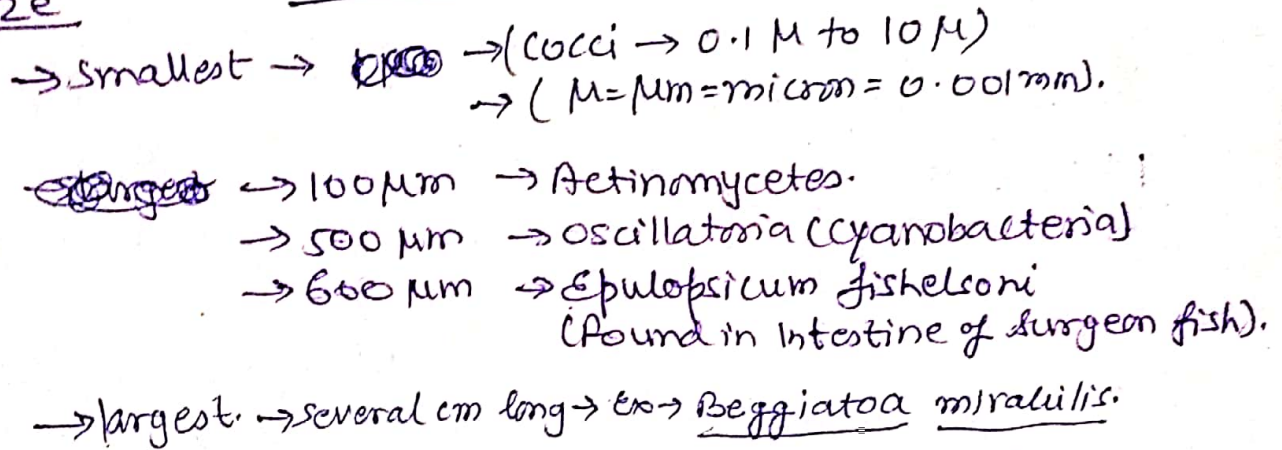 ze
→ smallest → →(cocci → 0.1 M to 10 M)
→ ( M = Mm = micron = 0.001 mm).
→ 100 Mm → Actinomycetes.
→ 500 Mm → oscillatoria (cyanobacteria)
→ 600 Mm → Epulopsicum fishelsoni
(found in Intestine of surgeon fish).
→ largest. → several cm long → Ex → Beggiatoa miralilis.